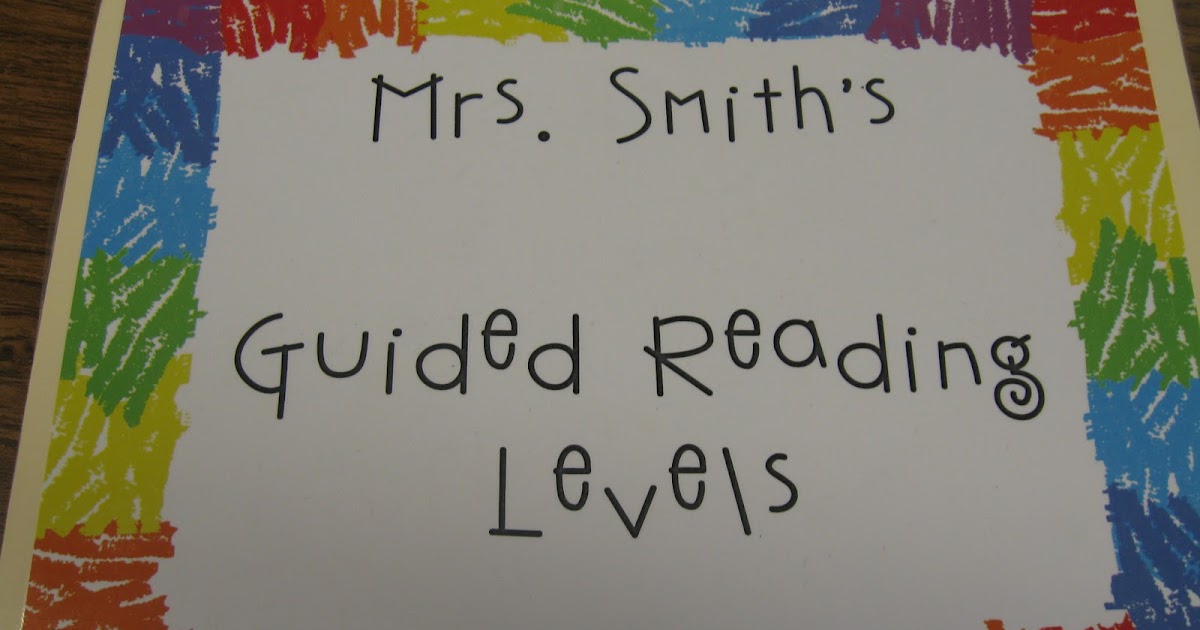 Mrs. Smith's
Guided Reading
Levels